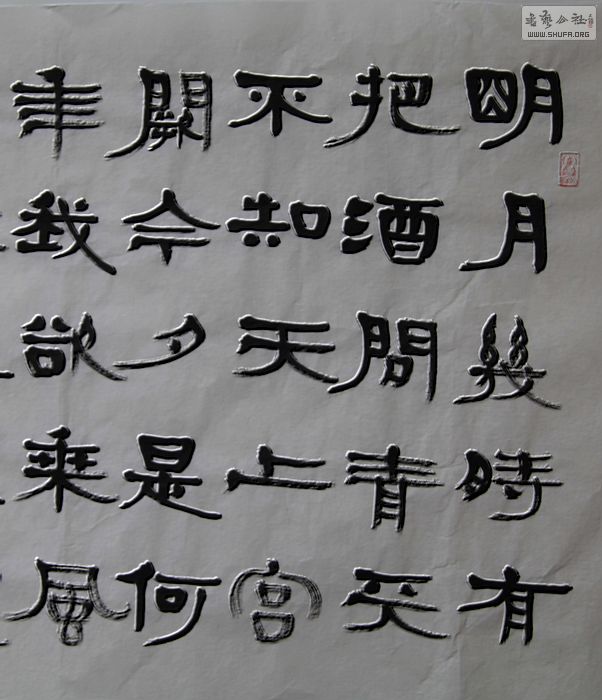 明月幾時有
把酒問青天
不知天上宮
闕今夕是何
年我欲乘風
書藝公社
WWW.SHUFA.ORG